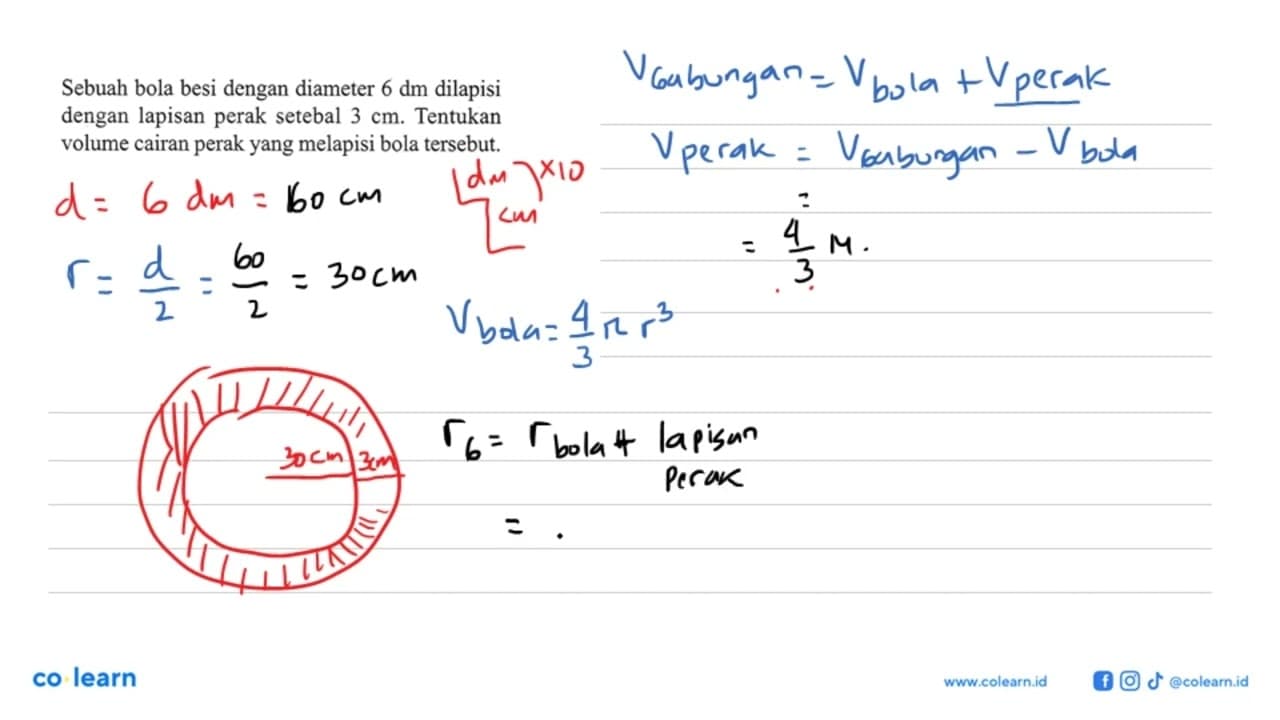 Sebuah bola besi dengan diameter 6 dm dilapisi
dengan lapisan perak setebal 3 cm. Tentukan
volume cairan perak yang melapisi bola tersebut.
d = 6 dm = 60 cm
dm ×10
cm
r = d/2 = 60/2 = 30 cm
V Gabungan = V bola + V perak
V perak = V Gabungan - V bola
=
= 4/3 π.
V bola = 4/3 π r³
30 cm 3 cm
r G = r bola + lapisan
perak
= .
co learn
www.colearn.id
@colearn.id